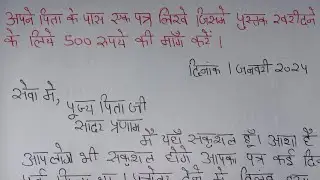 अपने पिता के पास एक पत्र लिखे जिसमे पुस्तक खरीदने
के लिये 500 रुपये की माँग करें।
दिनांक 1 जनवरी 2024
सेवा मे,
पूज्य पिता जी
सादर प्रणाम
मै यहाँ सकुशल हूँ। आशा है
आपलोग भी सकुशल होंगे आपका पत्र कई दिन